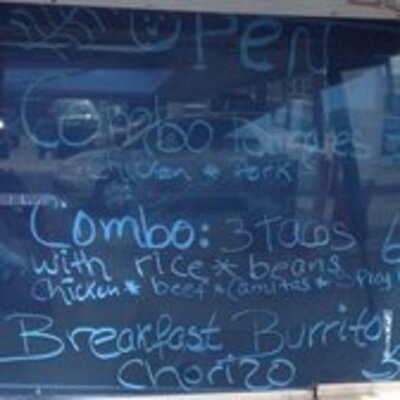 OPEN
Combo
chicken * Pork
Combo: 3 Tacos 6
with rice * beans
chicken * beef * Carnitas *
Breakfast Burrito
chorizo 5